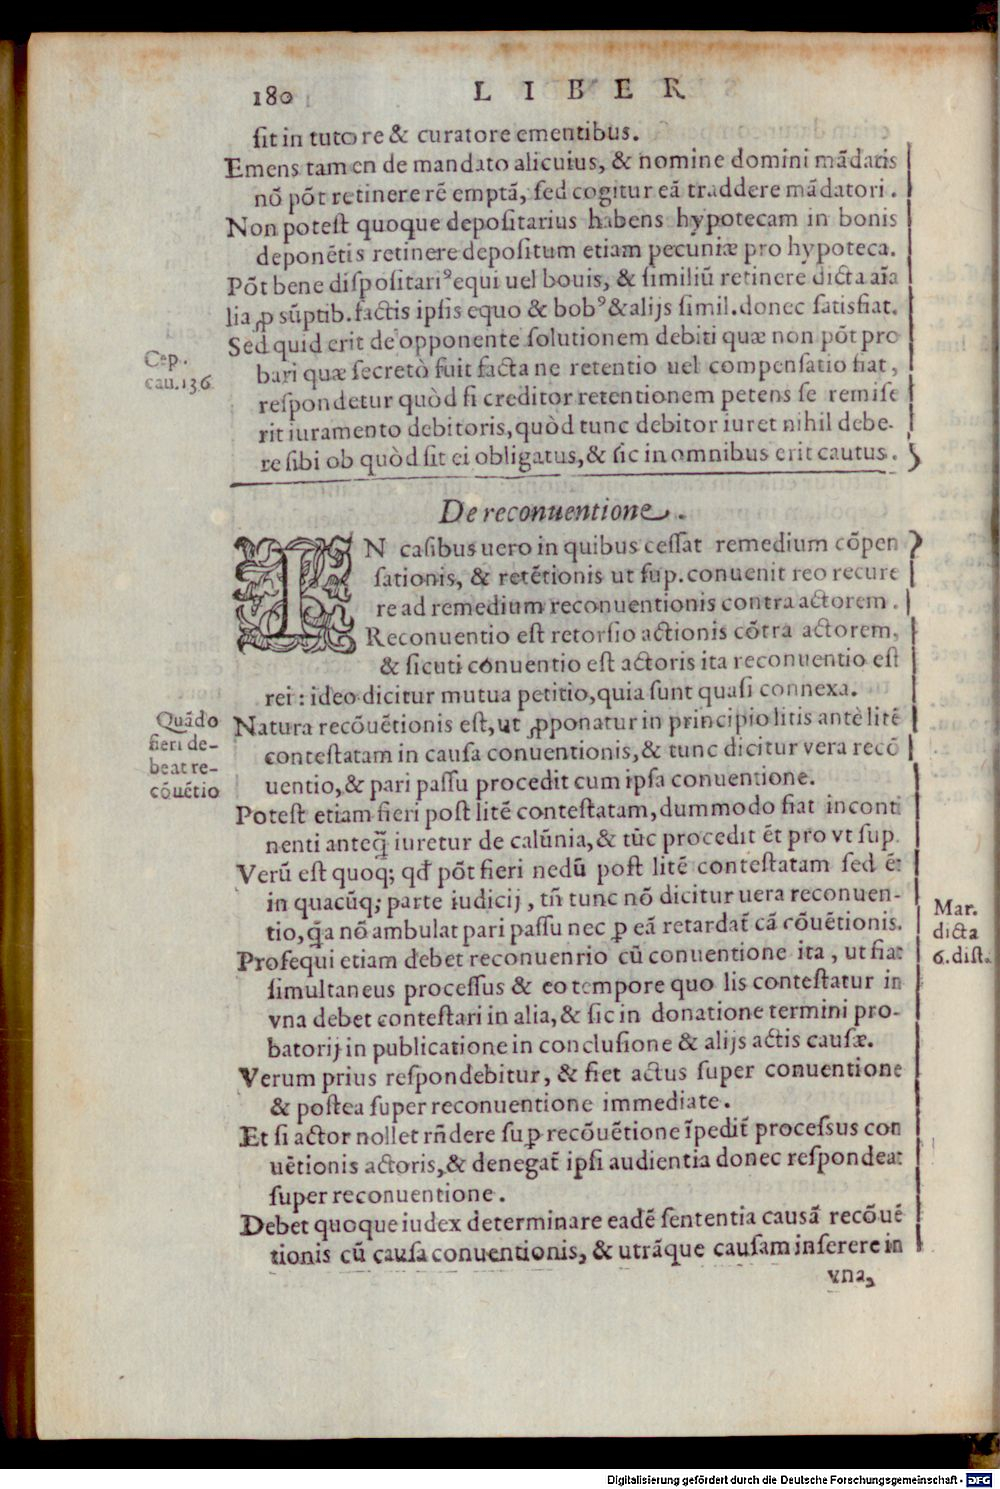 180 LIBER
sit in tutore & curatore ementibus.
Emens tamen de mandato alicuius, & nomine domini mãdatis
nõ põt retinere rẽ emptã, sed cogitur eã traddere mãdatori.
Non potest quoque depositarius habens hypotecam in bonis
deponẽtis retinere depositum etiam pecuniæ pro hypoteca.
Põt bene dispositariꝰ equi uel bouis, & similiũ retinere dicta aĩa
lia ꝓ sũptib. factis ipsis equo & bobꝰ & alijs simil. donec satisfiat.
Sed quid erit de opponente solutionem debiti quæ non põt pro
bari quæ secretò fuit facta ne retentio uel compensatio fiat,
respondetur quòd si creditor retentionem petens se remise
rit iuramento debitoris, quòd tunc debitor iuret nihil debe-
re sibi ob quòd sit ei obligatus, & sic in omnibus erit cautus.
Cep.
cau. 136.
De reconuentione.
IN casibus uero in quibus cessat remedium cõpen
sationis, & retẽtionis ut sup. conuenit reo recure
re ad remedium reconuentionis contra actorem.
Reconuentio est retorsio actionis cõtra actorem,
& sicuti conuentio est actoris ita reconuentio est
rei: ideo dicitur mutua petitio, quia sunt quasi connexa.
Natura recõuẽtionis est, ut ꝓponatur in principio litis antè litẽ
contestatam in causa conuentionis, & tunc dicitur vera recõ
uentio, & pari passu procedit cum ipsa conuentione.
Quãdo
fieri de-
beat re-
cõuẽtio
Potest etiam fieri post litẽ contestatam, dummodo fiat inconti
nenti anteq̃ iuretur de calũnia, & tũc procedit ẽt pro vt sup.
Verũ est quoq; qđ põt fieri nedũ post litẽ contestatam sed ẽt
in quacũq; parte iudicij, tñ tunc nõ dicitur uera reconuen-
tio, q̃a nõ ambulat pari passu nec ꝑ eã retardat̃ cã cõuẽtionis.
Prosequi etiam debet reconuenrio cũ conuentione ita, ut fiat
simultaneus processus & eo tempore quo lis contestatur in
vna debet contestari in alia, & sic in donatione termini pro-
batorij in publicatione in conclusione & alijs actis causæ.
Mar.
dicta
6. dist.
Verum prius respondebitur, & fiet actus super conuentione
& postea super reconuentione immediate.
Et si actor nollet rñdere suꝑ recõuẽtione ĩpedit̃ processus con
uẽtionis actoris, & denegat̃ ipsi audientia donec respondeat
super reconuentione.
Debet quoque iudex determinare eadẽ sententia causã recõuẽ
tionis cũ causa conuentionis, & utrãque causam inserere in
vna,
Digitalisierung gefördert durch die Deutsche Forschungsgemeinschaft - DFG